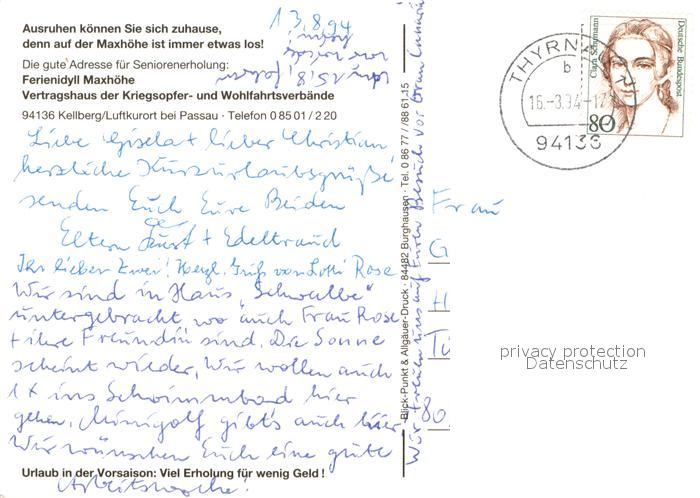 13.8.94
Ausruhen können Sie sich zuhause,
denn auf der Maxhöhe ist immer etwas los!
Die gute Adresse für Seniorenerholung:
Ferienidyll Maxhöhe
Vertragshaus der Kriegsopfer- und Wohlfahrtsverbände
94136 Kellberg/Luftkurort bei Passau · Telefon 0 85 01 / 2 20
Liebe Gisela + lieber Christian
herzliche Kurzurlaubsgrüße
senden Euch Eure Beiden
Eltern + Edeltraud
Ihr lieben Zwei! Herzl. Grüß von Lotti Rose
Wir sind in Haus „Schwalbe"
untergebracht wo auch Frau Rose
+ ihre Freundin sind. Die Sonne
scheint wieder. Wir wollen auch
1x ins Schwimmbad hier
gehen. Minigolf gibt's auch hier.
Wir wünschen Euch eine gute
Arbeitswoche!
Urlaub in der Vorsaison: Viel Erholung für wenig Geld !
Blick-Punkt & Allgäuer-Druck · 84482 Burghausen · Tel. 0 86 77 / 88 61-15
Wir freuen uns auf Euren Besuch vor
THYRN
b
94136
Clara Schumann
Deutsche Bundespost
80
Frau
G
H
Tü
80
privacy protection
Datenschutz